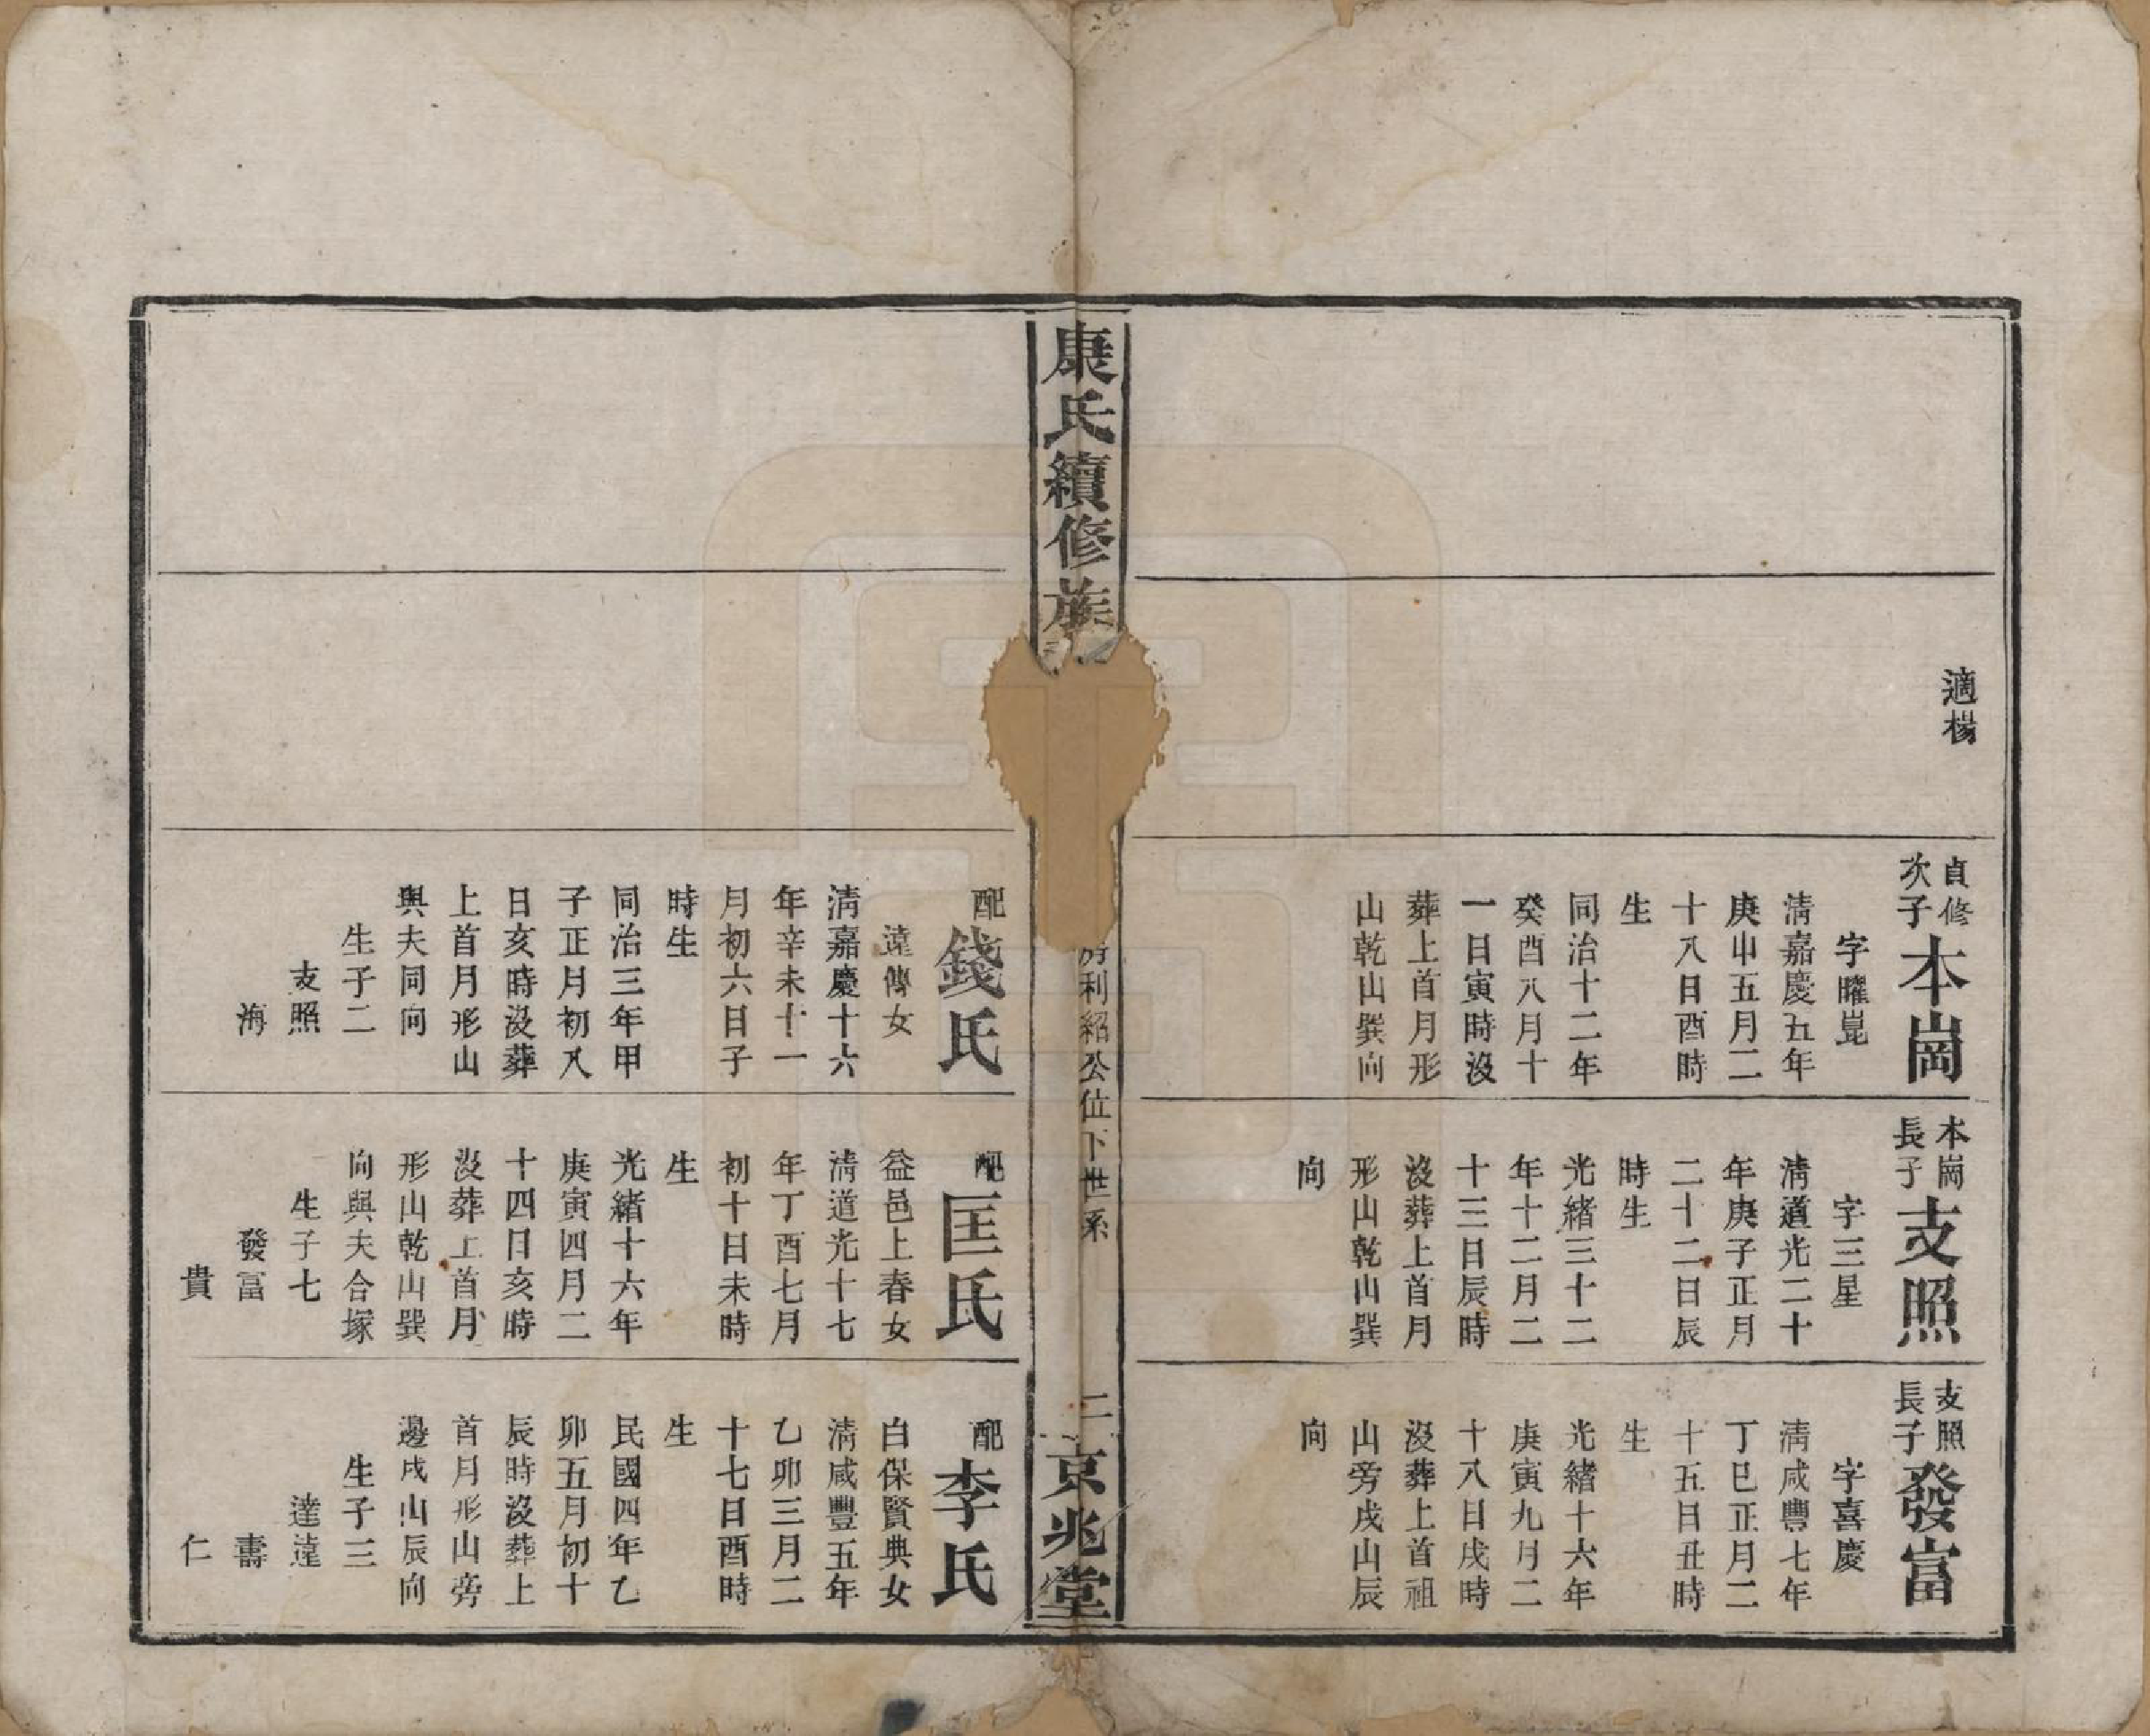 適楊
貞修
次子
本崗
字曜崑
清嘉慶五年
庚申五月二
十八日酉時
生
同治十二年
癸酉八月十
一日寅時沒
葬上首月形
山乾山巽向
本崗
長子
支照
字三星
清道光二十
年庚子正月
二十二日辰
時生
光緒三十二
年十二月二
十三日辰時
沒葬上首月
形山乾山巽
向
支照
長子
發富
字喜慶
清咸豐七年
丁巳正月二
十五日丑時
生
光緒十六年
庚寅九月二
十八日戌時
沒葬上首祖
山旁戌山辰
向
康氏續修族
房利紹公位下世系
二
京兆堂
配
錢氏
遠傳女
清嘉慶十六
年辛未十一
月初六日子
時生
同治三年甲
子正月初八
日亥時沒葬
上首月形山
與夫同向
生子二
支照
海
配
匡氏
益邑上春女
清道光十七
年丁酉七月
初十日未時
生
光緒十六年
庚寅四月二
十四日亥時
沒葬上首月
形山乾山巽
向與夫合塚
生子七
發富
貴
配
李氏
白保賢典女
清咸豐五年
乙卯三月二
十七日酉時
生
民國四年乙
卯五月初十
辰時沒葬上
首月形山旁
邊戌山辰向
生子三
達遠
壽
仁